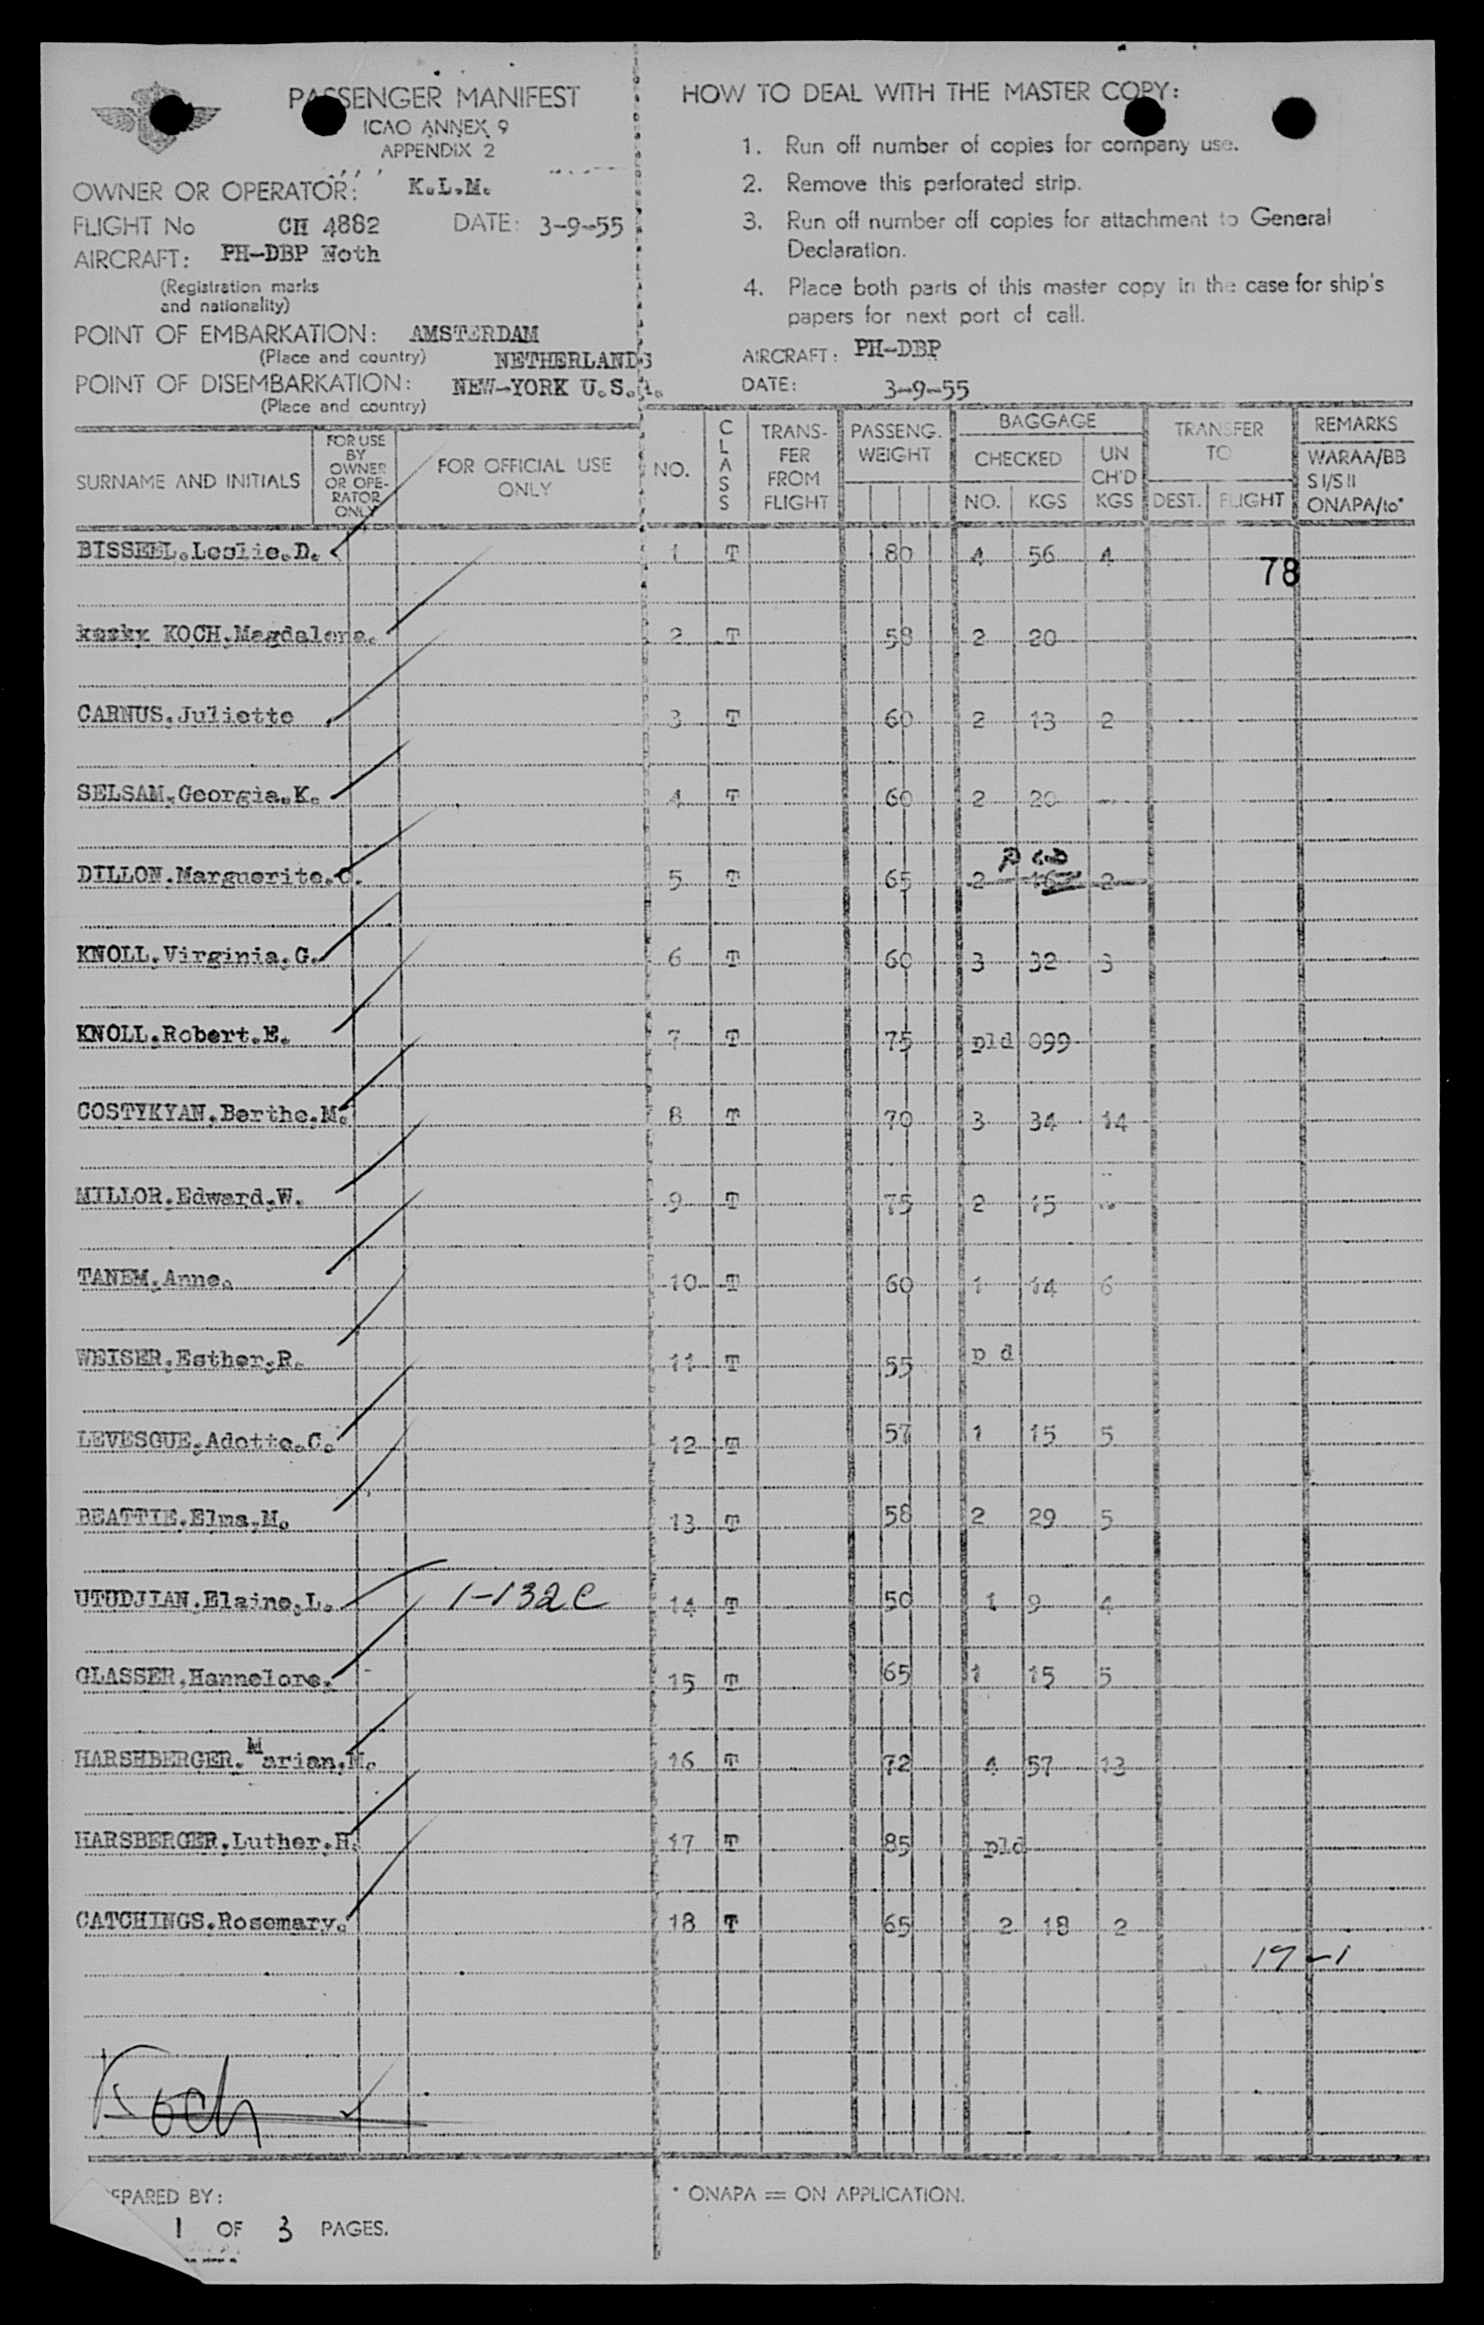 PASSENGER MANIFEST
ICAO ANNEX 9
APPENDIX 2
OWNER OR OPERATOR: K.L.M.
FLIGHT No CH 4882 DATE: 3-9-55
AIRCRAFT: PH-DBP Noth
(Registration marks
and nationality)
POINT OF EMBARKATION: AMSTERDAM
(Place and country) NETHERLANDS
POINT OF DISEMBARKATION: NEW-YORK U.S.A.
(Place and country)
HOW TO DEAL WITH THE MASTER COPY:
1. Run off number of copies for company use.
2. Remove this perforated strip.
3. Run off number off copies for attachment to General
Declaration.
4. Place both parts of this master copy in the case for ship's
papers for next port of call.
AIRCRAFT: PH-DBP
DATE: 3-9-55
SURNAME AND INITIALS FOR USE BY OWNER OR OPE- RATOR ONLY FOR OFFICIAL USE ONLY NO. CLASS TRANS- FER FROM FLIGHT PASSENG. WEIGHT BAGGAGE CHECKED NO. KGS UN CH'D KGS TRANSFER TO DEST. FLIGHT REMARKS WARAA/BB S I/S II ONAPA/to*
BISSELL.Leslie.D. 1 T 80 4 56 4
78
KOCH.Magdalena. 2 T 58 2 20
CARNUS.Juliette 3 T 60 2 13 2
SELSAM.Georgia.K. 4 T 60 2 20 --
DILLON.Marguerite.C. 5 T 65 2 16 2
KNOLL.Virginia.G. 6 T 60 3 32 3
KNOLL.Robert.E. 7 T 75 pld 099
COSTYKYAN.Berthe.M. 8 T 70 3 34 14
MILLOR.Edward.W. 9 T 75 2 15
TANEM.Anne. 10 T 60 1 14 6
WEISER.Esther.R. 11 T 55 p d
LEVESQUE.Adette.C. 12 T 57 1 15 5
BEATTIE.Elma.M. 13 T 58 2 29 5
UTUDJIAN.Elaine.L. 1-132C 14 T 50 1 9 4
GLASSER.Hannelore. 15 T 65 1 15 5
HARSHBERGER.Marian.M. 16 T 72 4 57 13
HARSBERGER.Luther.H. 17 T 85 pld
CATCHINGS.Rosemary. 18 T 65 2 18 2
17-1
Koch
EPARED BY:
1 OF 3 PAGES.
* ONAPA = ON APPLICATION.